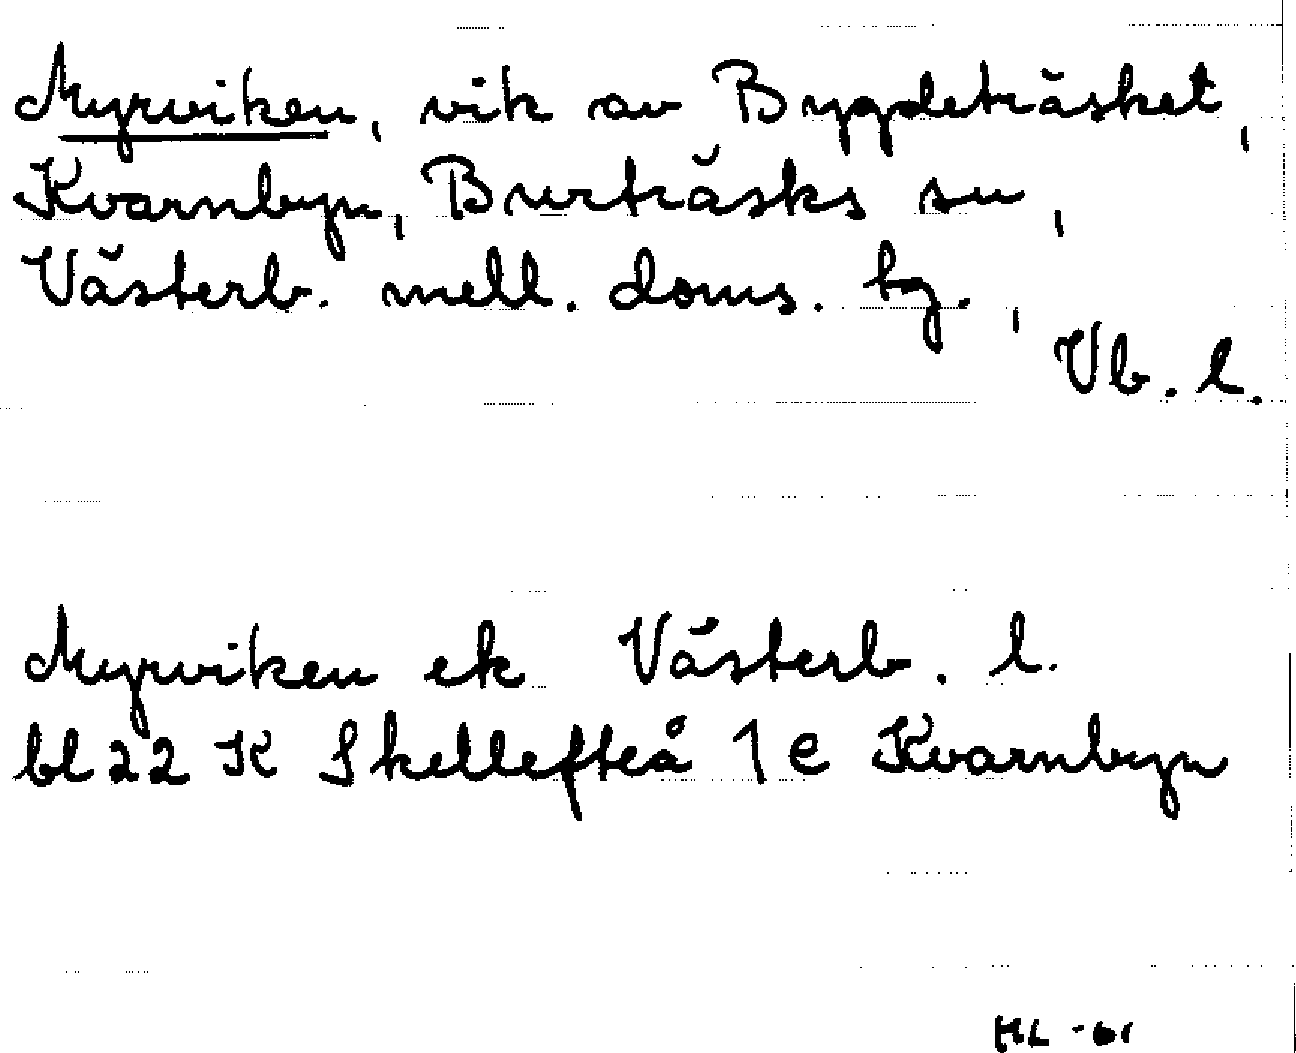 Myrviken, vik av Bygdeträsket,
Kvarnbyn, Burträsks sn,
Västerb. mell. doms. tg.,
Vb. l.
Myrviken ek Västerb. l.
bl 22 K Skellefteå 1e Kvarnbyn
HL -61